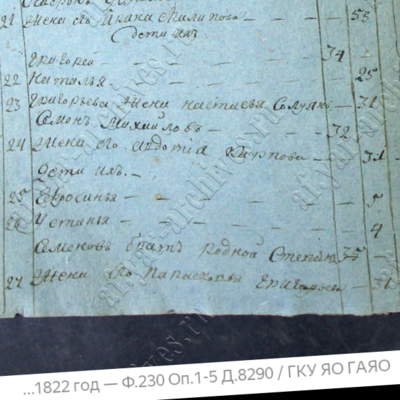 21 Жена ево Филипова — 53
дети их
Григореи — 34
22 Наталья — 25
23 Григорьева жена Настасья — 31
Семен Михаилов — 32
24 Жена ево Авдотья Карпова — 31
дети их —
25 Евросинья — 5
26 Устинья — 4
Семенов брат родной Степан 35
27 Жена ево Парасковья Григорьева — 31
...1822 год — Ф.230 Оп.1-5 Д.8290 / ГКУ ЯО ГАЯО